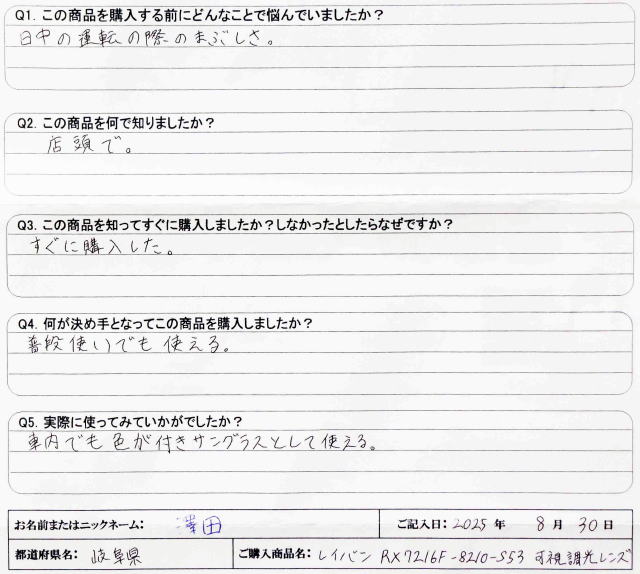 Q1. この商品を購入する前にどんなことで悩んでいましたか？
日中の運転の際のまぶしさ。
Q2. この商品を何で知りましたか？
店頭で。
Q3. この商品を知ってすぐに購入しましたか？しなかったとしたらなぜですか？
すぐに購入した。
Q4. 何が決め手となってこの商品を購入しましたか？
普段使いでも使える。
Q5. 実際に使ってみていかがでしたか？
車内でも色が付きサングラスとして使える。
お名前またはニックネーム： 澤田 ご記入日：2025 年 8 月 30 日
都道府県名： 岐阜県 ご購入商品名： レイバン RX7216F-8210-S53 可視調光レンズ